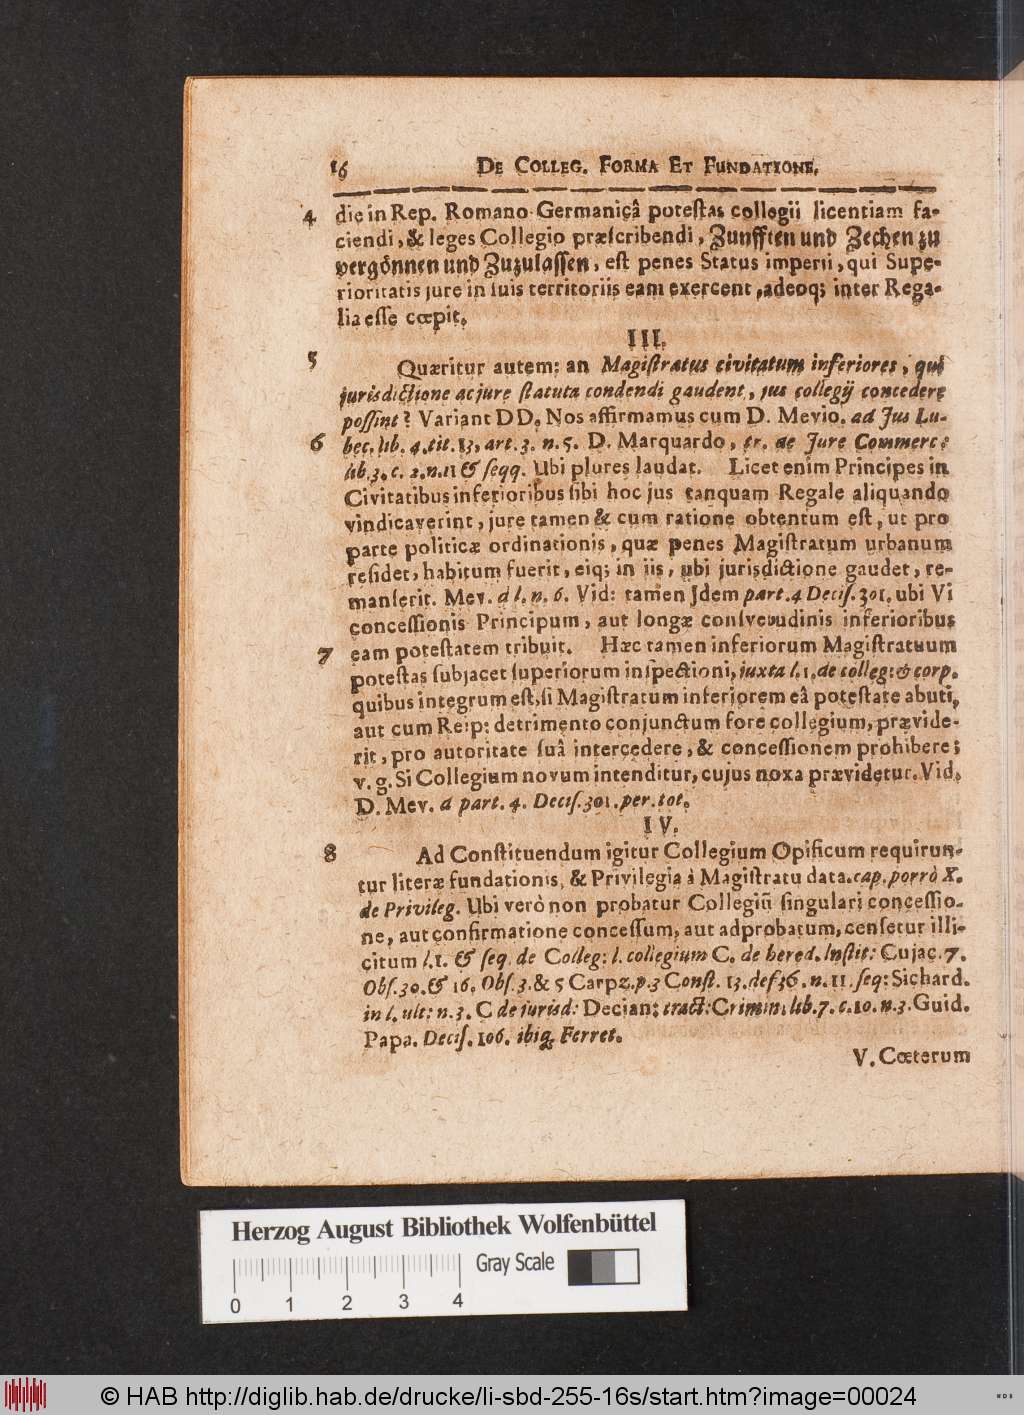 16 DE COLLEG. FORMA ET FUNDATIONE.
4 die in Rep. Romano-Germanicâ potestas collegii licentiam fa-
ciendi, & leges Collegio præscribendi, Zunfften und Zechen zu
vergönnen und Zuzulassen, est penes Status imperii, qui Supe-
rioritatis jure in suis territoriis eam exercent, adeoq; inter Rega-
lia esse cœpit.
III.
5 Quæritur autem: an Magistratus civitatum inferiores, qui
jurisdictione ac jure statuta condendi gaudent, jus collegij concedere
possint? Variant DD. Nos affirmamus cum D. Mevio. ad Jus Lu-
6 bec. lib. 4. tit. 13. art. 3. n. 5. D. Marquardo, tr. de Jure Commerc:
lib. 3. c. 2. n. 11 & seqq. Ubi plures laudat. Licet enim Principes in
Civitatibus inferioribus sibi hoc jus tanquam Regale aliquando
vindicaverint, jure tamen & cum ratione obtentum est, ut pro
parte politicæ ordinationis, quæ penes Magistratum urbanum
residet, habitum fuerit, eiq; in iis, ubi jurisdictione gaudet, re-
manserit. Mev. d l. n. 6. Vid: tamen Jdem part. 4 Decis. 301. ubi Vi
concessionis Principum, aut longæ consvetudinis inferioribus
7 eam potestatem tribuit. Hæc tamen inferiorum Magistratuum
potestas subjacet superiorum inspectioni, juxta l. 1. de colleg: & corp.
quibus integrum est, si Magistratum inferiorem eâ potestate abuti,
aut cum Reip: detrimento conjunctum fore collegium, prævide-
rit, pro autoritate suâ intercedere, & concessionem prohibere;
v. g. Si Collegium novum intenditur, cujus noxa prævidetur. Vid.
D. Mev. d part. 4. Decis. 301. per. tot.
IV.
8 Ad Constituendum igitur Collegium Opificum requirun-
tur literæ fundationis, & Privilegia à Magistratu data. cap. porrò X.
de Privileg. Ubi verò non probatur Collegiū singulari concessio-
ne, aut confirmatione concessum, aut adprobatum, censetur illi-
citum l. 1. & seq. de Colleg: l. collegium C. de hered. Instit: Cujac. 7.
Obs. 30. & 16. Obs. 3. & 5 Carpz. p. 3 Const. 13. def. 36. n. 11. seq: Sichard.
in l. ult: n. 3. C de jurisd: Decian: tract: Crimin: lib. 7. c. 10. n. 3. Guid.
Papa. Decis. 106. ibiq; Ferret.
V. Cœterum
Herzog August Bibliothek Wolfenbüttel
Gray Scale
0 1 2 3 4
© HAB http://diglib.hab.de/drucke/li-sbd-255-16s/start.htm?image=00024
WDB